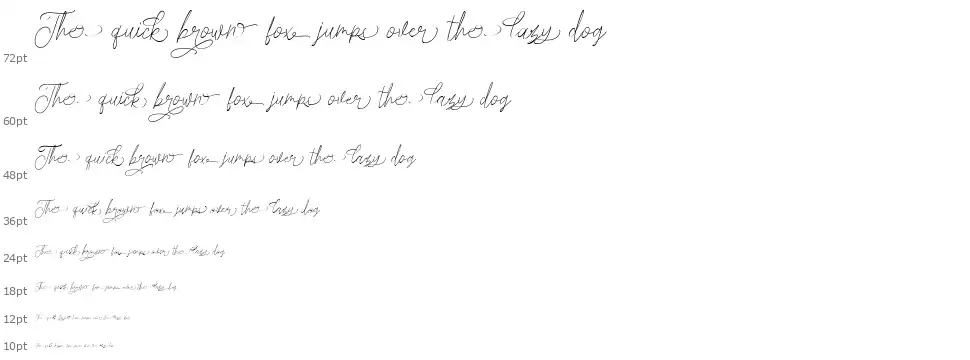 The quick brown fox jumps over the lazy dog
72pt
The quick brown fox jumps over the lazy dog
60pt
The quick brown fox jumps over the lazy dog
48pt
The quick brown fox jumps over the lazy dog
36pt
The quick brown fox jumps over the lazy dog
24pt
The quick brown fox jumps over the lazy dog
18pt
12pt
10pt